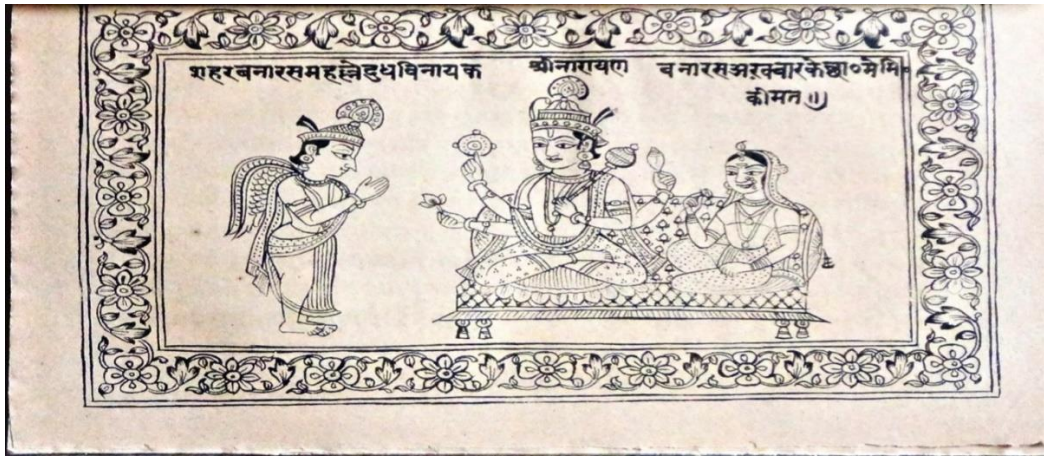 शहरबनारसमहल्लेदुधविनायक श्रीनारायण बनारसअखबारकेछा॰मेमि॰
कीमत ॥)